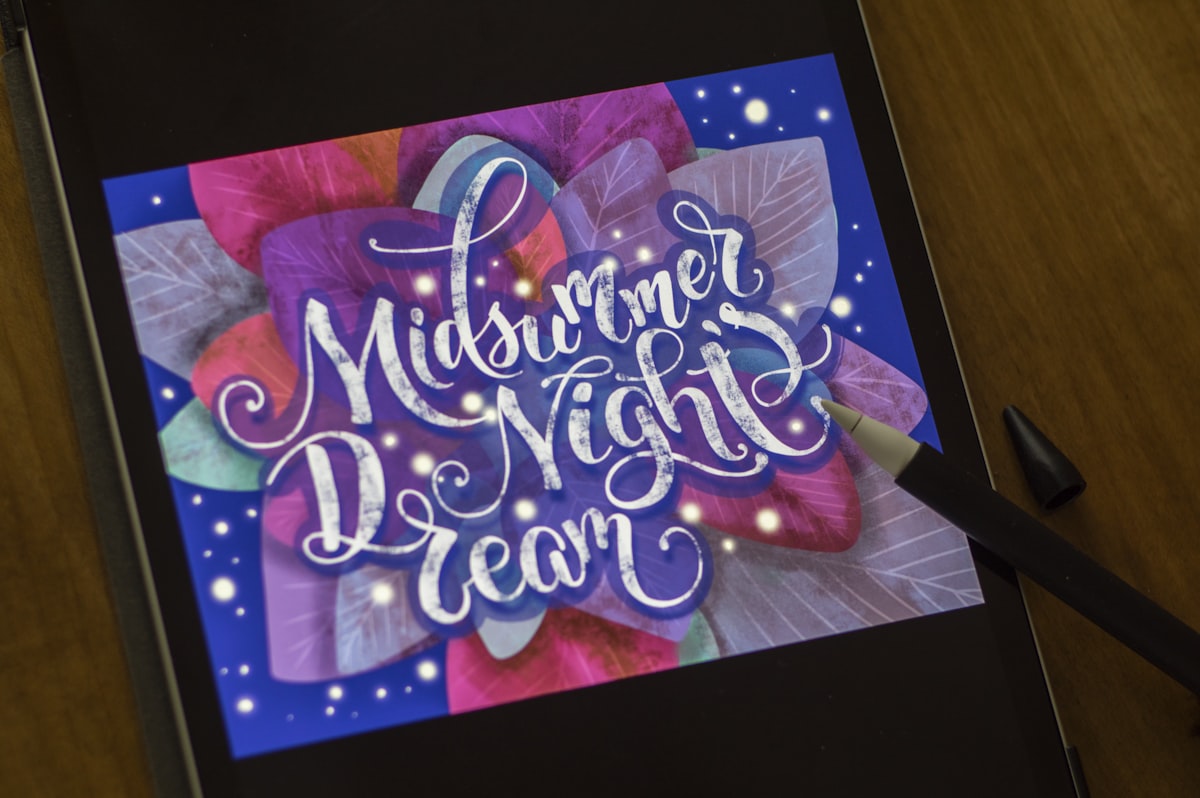 Midsummer
Night's
Dream